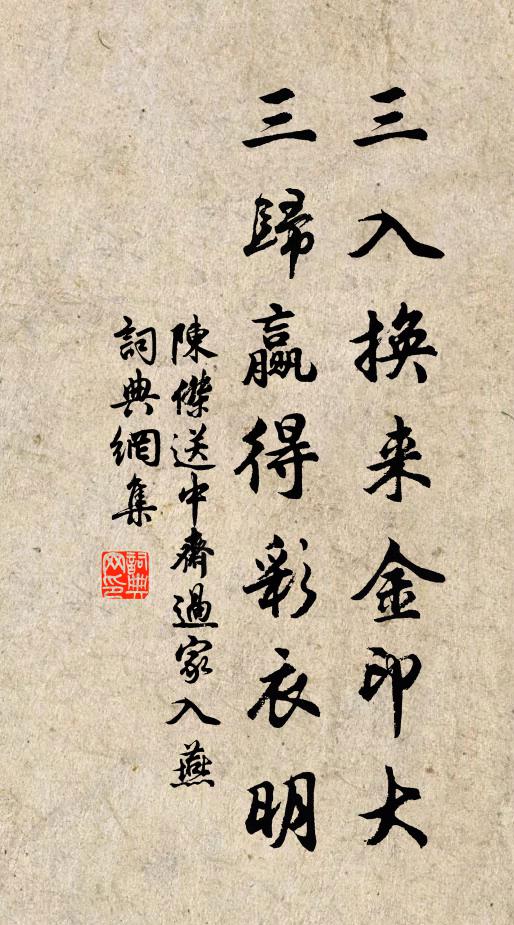 三入換来金印大
三歸贏得彩衣明
陳傑送中齋過家入燕
詞典網集
詞典网印